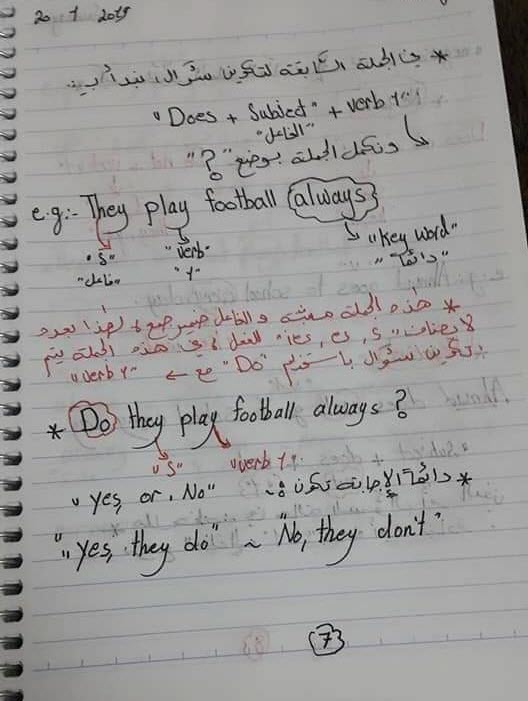 20 1 2015
* في الجملة السابقة لتكوين سؤال، نبدأ بـ:
"Does + Subject" + verb 1"
"الفاعل"
ونكمل الجملة بوضع "؟"
e.g:- They play football always
"S" "verb" "Key word"
"فاعل" "1" "دائماً"
* هذه الجملة مثبتة والفاعل ضمير جمع، لهذا بعده
لا يضاف "ies, es, s" للفعل، في هذه الجملة يتم
تكوين سؤال باستخدام "Do" مع ← "verb 1"
* Do they play football always ?
"S" "verb 1"
* دائماً الإجابة تكون: "yes, or, No"
"yes, they do" ~ "No, they don't"
7